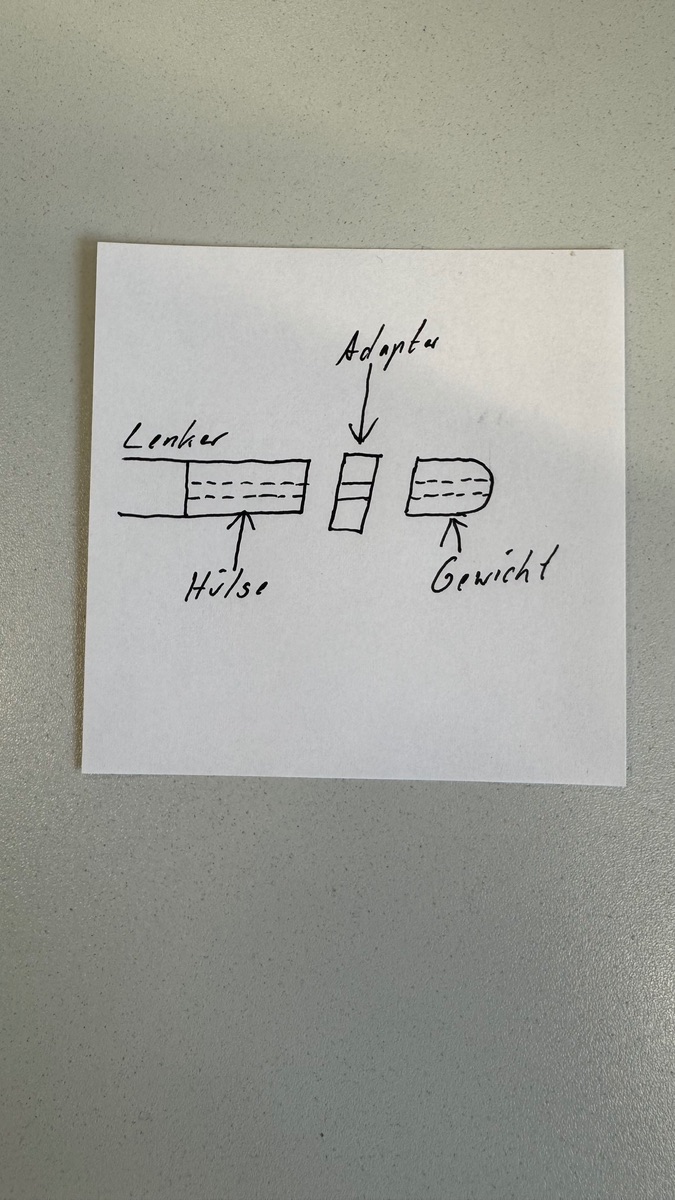 Adapter
Lenker
Hülse
Gewicht